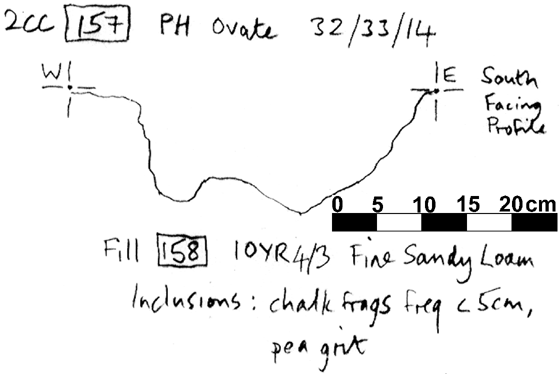 2CC 157 PH Ovate 32/33/14
W E South
Facing
Profile
0 5 10 15 20 cm
Fill 158 10YR 4/3 Fine Sandy Loam
Inclusions: chalk frags freq < 5cm,
pea grit